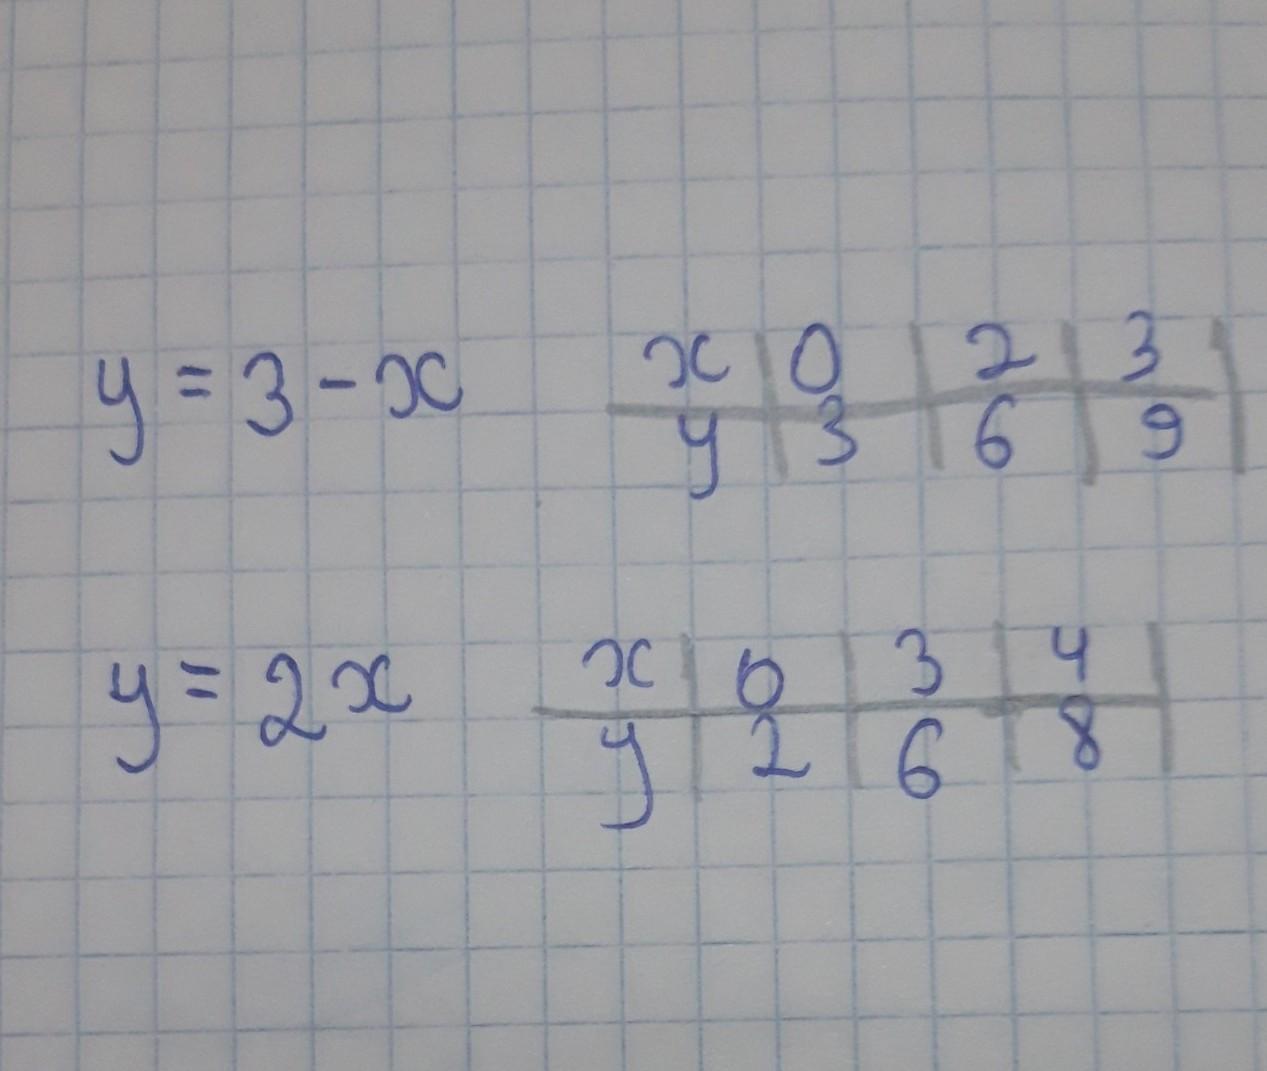 y = 3 - x x 0 2 3
y 3 6 9
y = 2x x 0 3 4
y 2 6 8